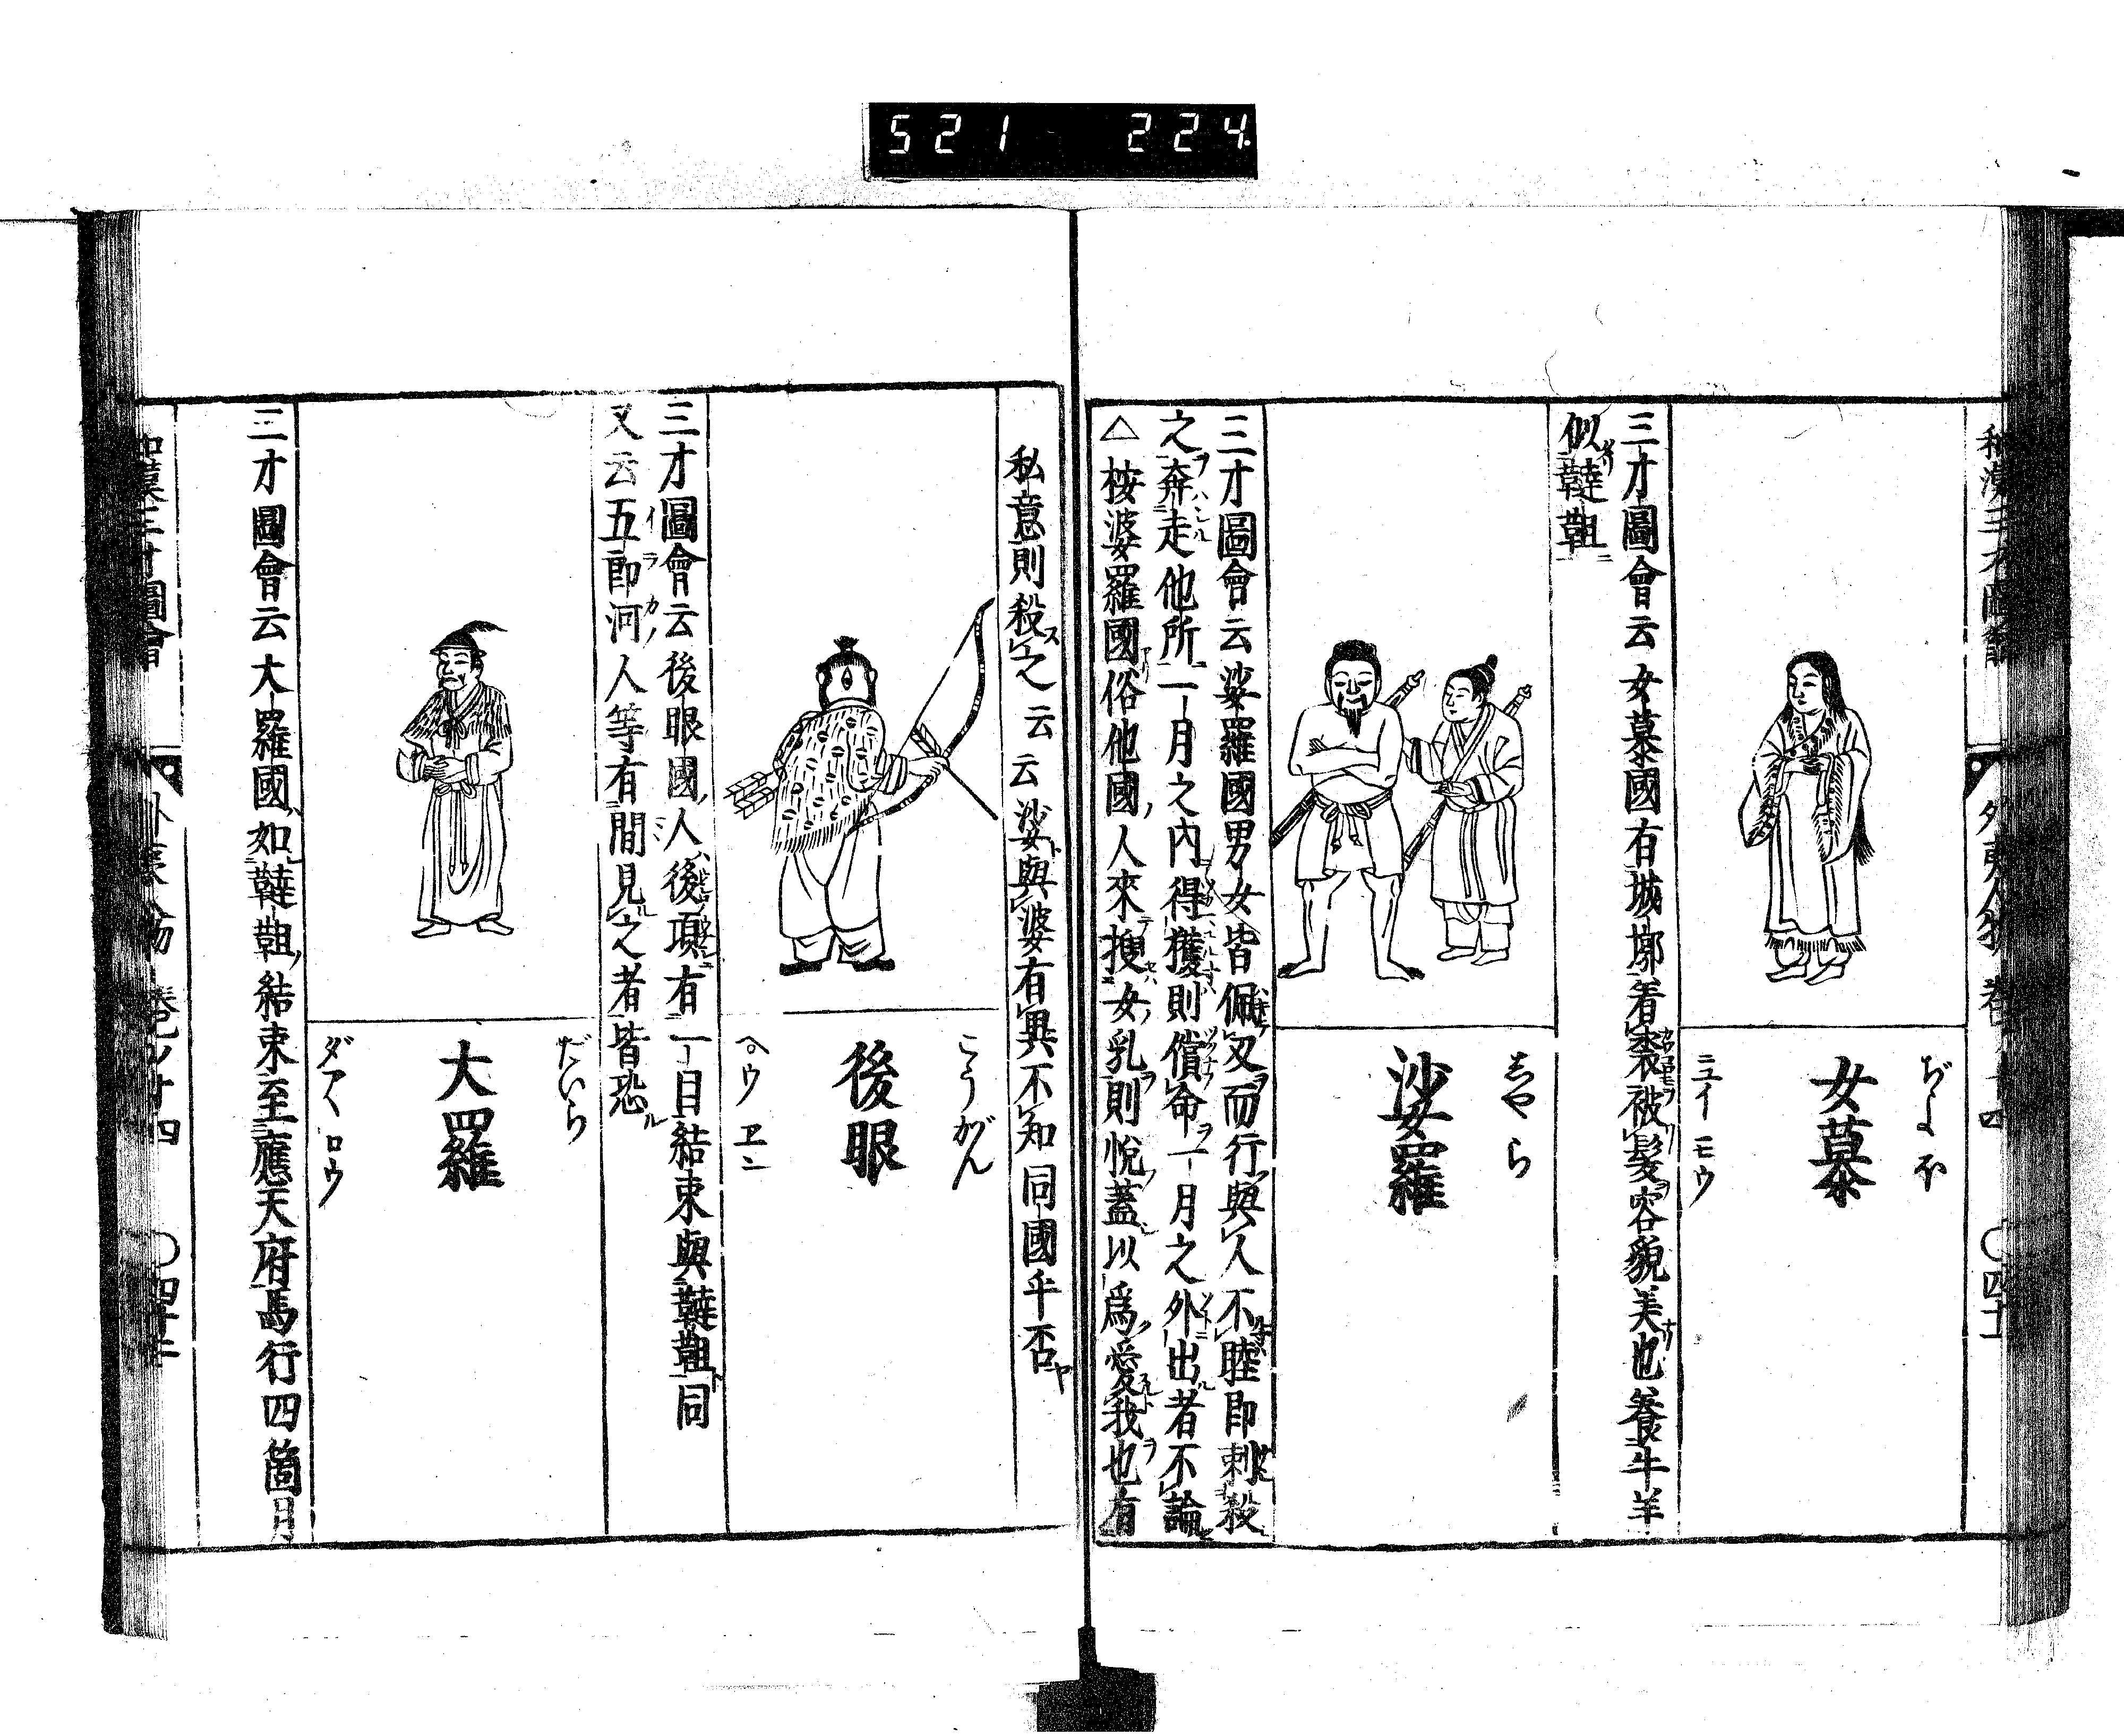 521 224
和漢三才圖會 外夷人物 卷十四 〇四十二
ぢよ不
女慕
ニユイモウ
三才圖會云女慕國有城廓着柰被髮容貌美也養牛羊
似韃靼
志やら
娑羅
三才圖會云娑羅國男女皆佩刀而行與人不睦即刺殺
之奔走他所一月之內得獲則償命一月之外出者不論
△桉婆羅國俗他國人來摸女乳則悅蓋以爲愛我也有
私意則殺之云云娑與婆有異不知同國乎否
こうがん
後眼
ヘ゜ウヱン
三才圖會云後眼國人後項有一目結束與韃靼同
又云五郎河人等有間見之者皆恐
だいら
大羅
ダアヽロウ
三才圖會云大羅國如韃靼結束至應天府馬行四箇月
和漢三才圖會 外夷人物 卷ノ十四